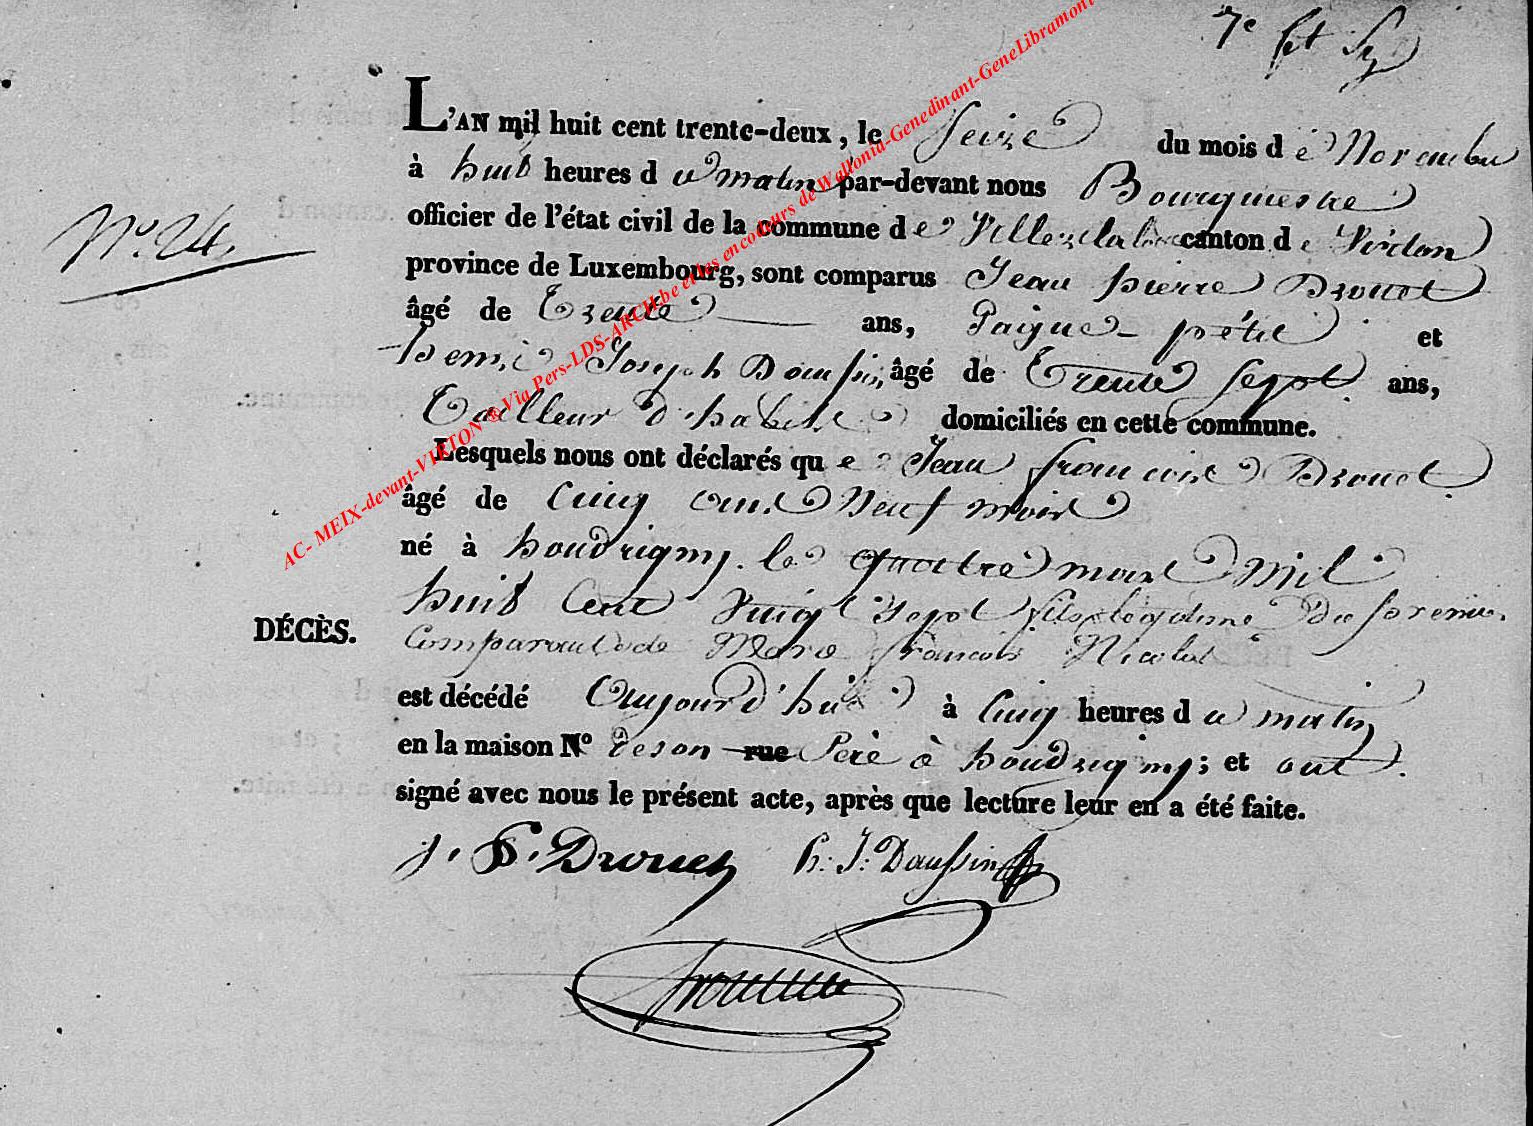 7e
N.o 24.
L'AN mil huit cent trente-deux, le Seize du mois de Novembre
à huit heures du matin par-devant nous Bourgmestre
officier de l'état civil de la commune de Villerslaloue canton de Virton
province de Luxembourg, sont comparus Jean pierre Drouet
âgé de Trente ans, et
henri Joseph Daussin âgé de Trente Sept ans,
Tailleur d'habits domiciliés en cette commune.
Lesquels nous ont déclarés que Jean francois Drouet
âgé de Cinq ans Neuf mois
né à houdrigny le quatre mars mil
DÉCÈS.
huit Cent Vingt Sept fils legitime du premier
Comparant et de Marie francois Nicolas
est décédé aujourd'hui à Cinq heures du matin
en la maison No de son rue Père à houdrigny; et ont
signé avec nous le présent acte, après que lecture leur en a été faite.
J. P. Drouet h: J: Daussin
AC- MEIX-devant-VIRTON ® Via Pers-LDS-ARCH.be et les encodeurs de Wallonia-Genedinant-GeneLibramont